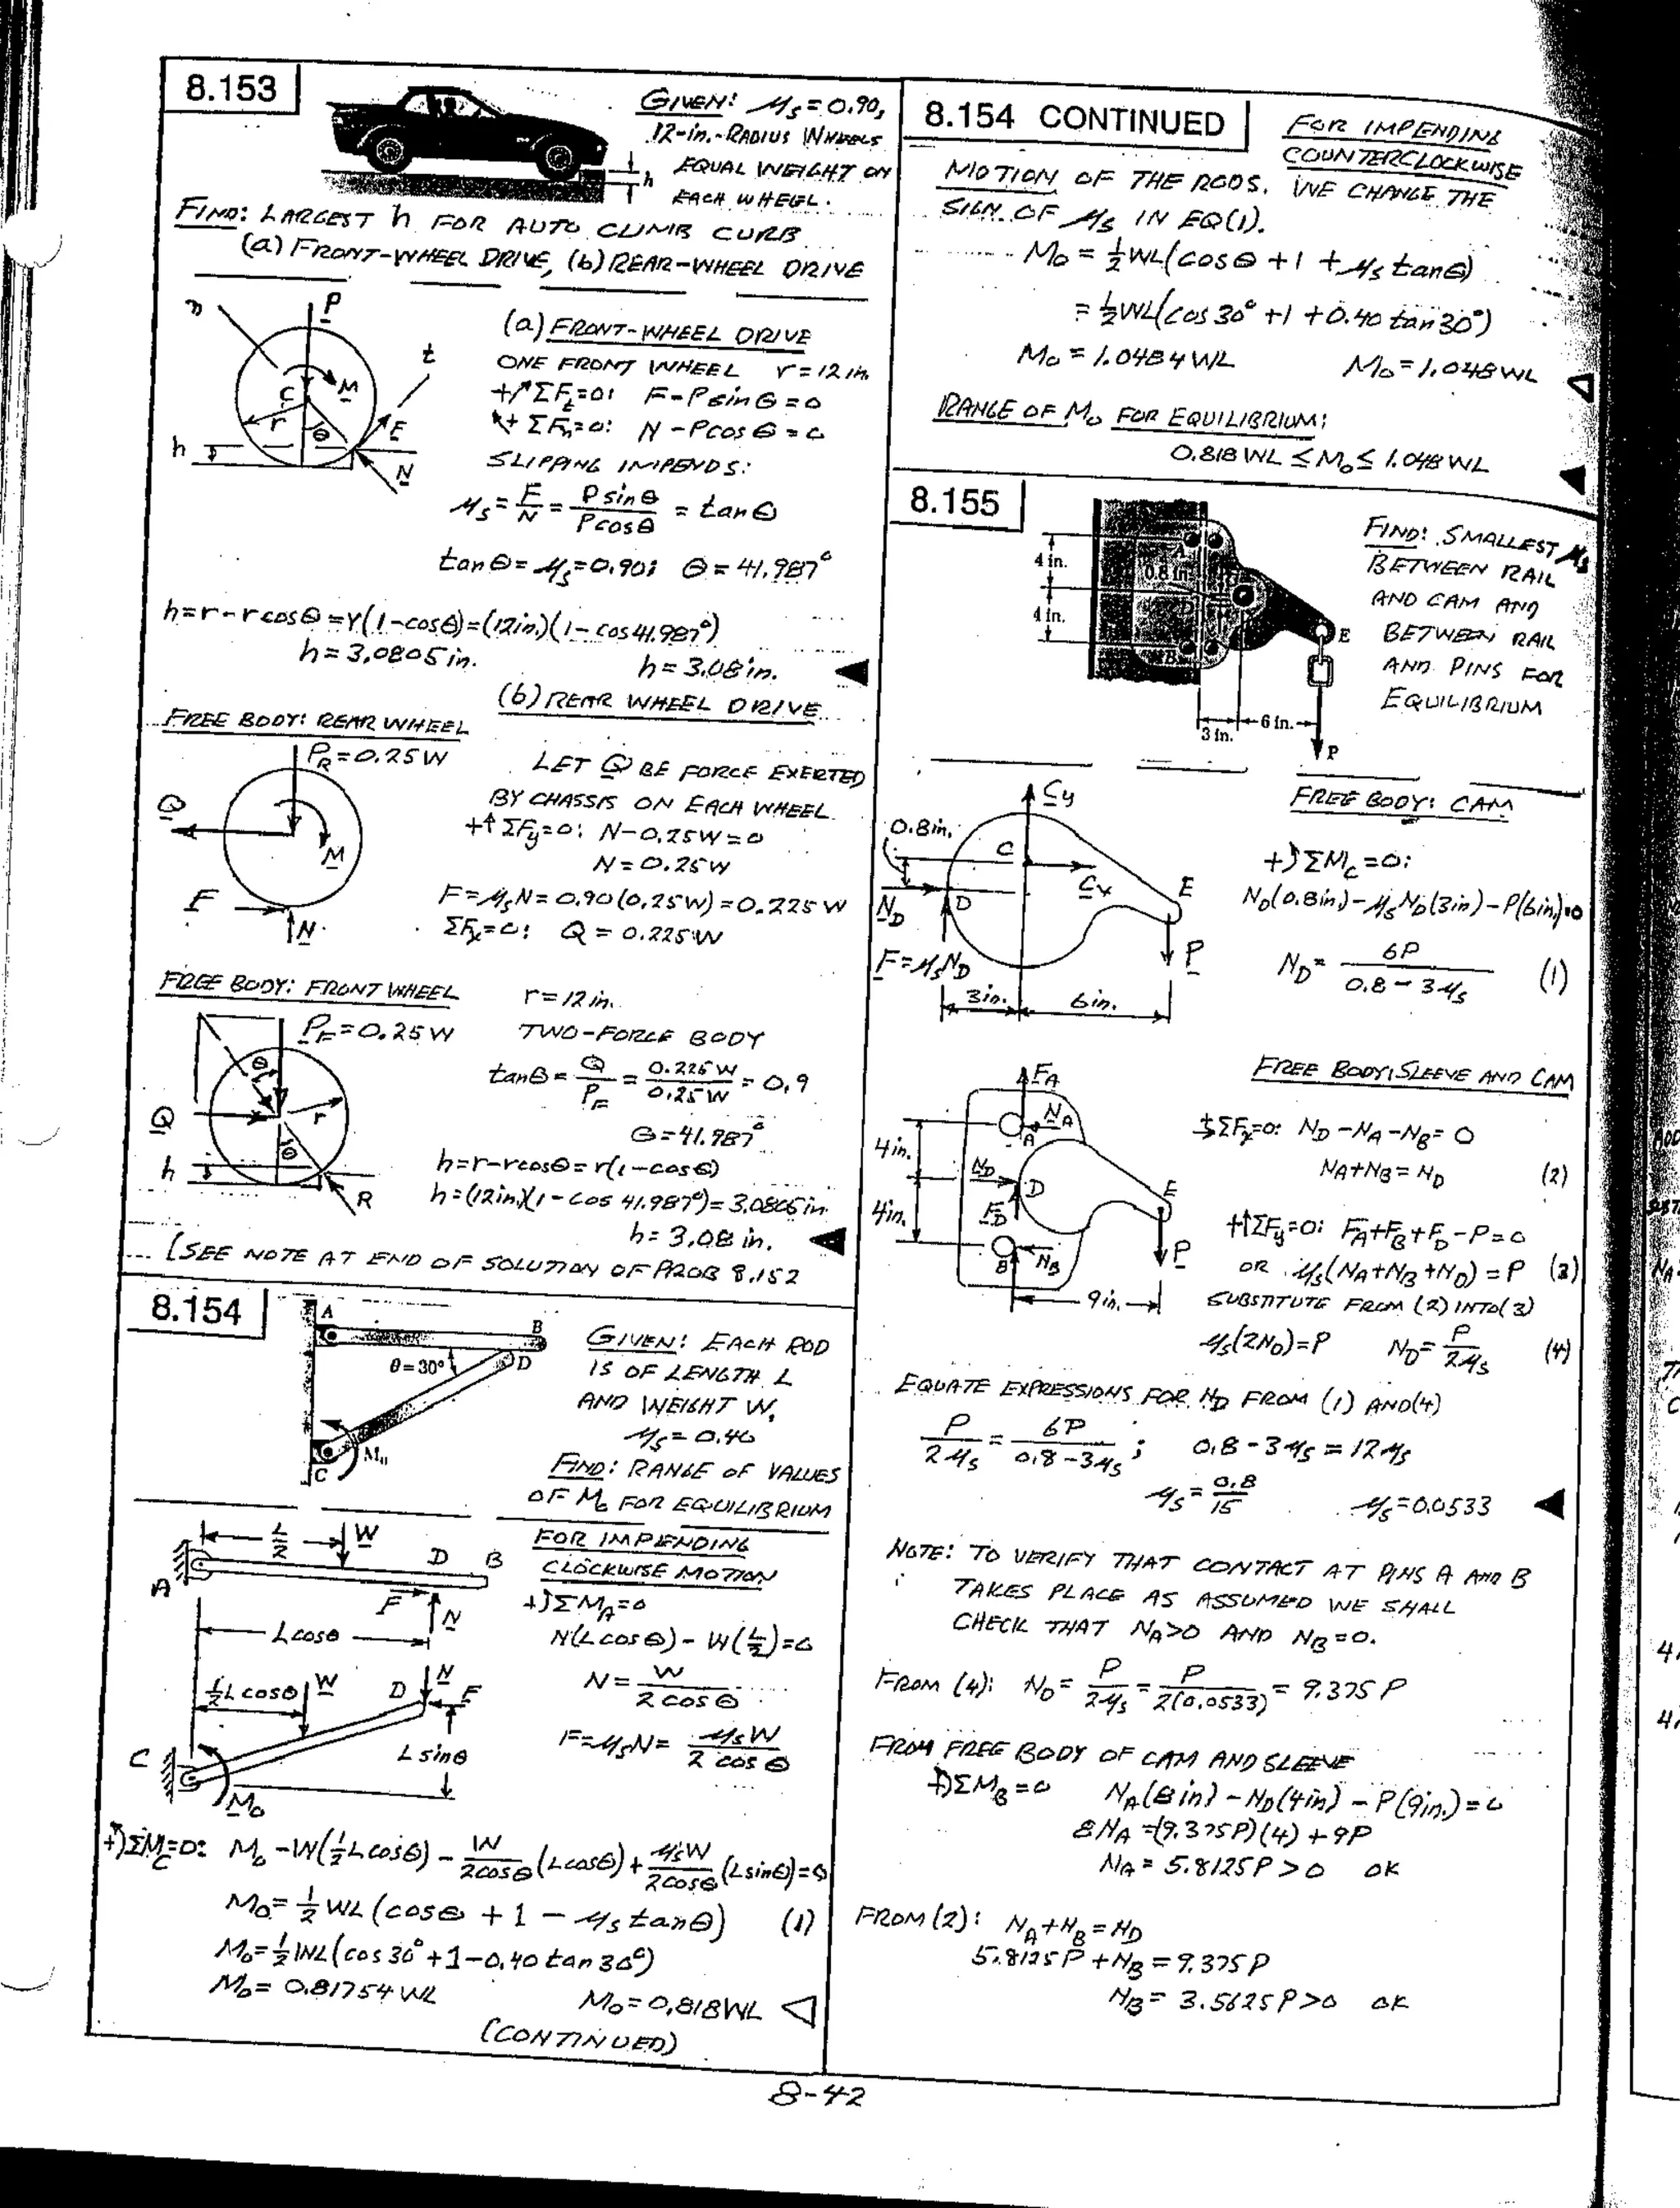 8.153
GIVEN: μs = 0.90,
12-in.-RADIUS WHEELS
EQUAL WEIGHT ON
EACH WHEEL.
h
FIND: LARGEST h FOR AUTO CLIMB CURB
(a) FRONT-WHEEL DRIVE, (b) REAR-WHEEL DRIVE
n
P
t
C
M
r
θ
F
h
N
(a) FRONT-WHEEL DRIVE
ONE FRONT WHEEL r = 12 in.
+↗ΣFt=0: F-Psinθ=0
↖+ ΣFn=0: N-Pcosθ=0
SLIPPING IMPENDS:
μs = F/N = Psinθ/Pcosθ = tanθ
tanθ = μs = 0.90; θ = 41.987°
h=r-rcosθ=r(1-cosθ)=(12in.)(1-cos41.987°)
h = 3.0805 in.
h = 3.08 in. ◀
(b) REAR WHEEL DRIVE
FREE BODY: REAR WHEEL
PR = 0.25W
Q
M
F
N
LET Q BE FORCE EXERTED
BY CHASSIS ON EACH WHEEL.
+↑ΣFy=0: N-0.25W=0
N=0.25W
F=μsN=0.90(0.25W)=0.225W
ΣFx=0: Q = 0.225W
FREE BODY: FRONT WHEEL
r = 12 in.
PF = 0.25W
θ
Q
r
θ
h
R
TWO-FORCE BODY
tanθ = Q/PF = 0.225W/0.25W = 0.9
θ=41.987°
h=r-rcosθ=r(1-cosθ)
h=(12in.)(1-cos 41.987°)=3.0805in.
h = 3.08 in. ◀
[SEE NOTE AT END OF SOLUTION OF PROB 8.152
8.154
A
B
θ = 30°
D
M0
C
GIVEN: EACH ROD
IS OF LENGTH L
AND WEIGHT W,
μs = 0.40
FIND: RANGE OF VALUES
OF M0 FOR EQUILIBRIUM
L/2
W
D
B
A
F
N
L cosθ
½L cosθ
W
D
N
F
L sinθ
C
M0
FOR IMPENDING
CLOCKWISE MOTION
+)ΣMA=0
N(L cosθ) - W(L/2)=0
N = W/2cosθ
F=μsN= μsW/2cosθ
+)ΣMC=0: M0-W(½Lcosθ) - W/2cosθ (Lcosθ) + μsW/2cosθ (Lsinθ)=0
M0 = ½WL(cosθ + 1 - μs tanθ) (1)
M0=½WL(cos30°+1-0.40 tan30°)
M0= 0.81754 WL
M0 = 0.818WL ◁
(CONTINUED)
8.154 CONTINUED
FOR IMPENDING
COUNTERCLOCKWISE
MOTION OF THE RODS. WE CHANGE THE
SIGN OF μs IN EQ(1).
M0 = ½WL(cosθ +1 +μs tanθ)
= ½WL(cos30° +1 +0.40 tan30°)
M0 = 1.0484WL
M0 = 1.048WL ◁
RANGE OF M0 FOR EQUILIBRIUM:
0.818WL ≤ M0 ≤ 1.048WL ◀
8.155
A
4 in.
0.8 in.
D
C
4 in.
B
E
3 in.
6 in.
P
FIND: SMALLEST μs
BETWEEN RAIL
AND CAM AND
BETWEEN RAIL
AND PINS FOR
EQUILIBRIUM
FREE BODY: CAM
Cy
0.8in.
C
Cx
E
ND
D
P
F=μsND
3in.
6in.
+)ΣMC=0:
ND(0.8in)-μsND(3in)-P(6in)=0
ND = 6P/0.8-3μs (1)
FREE BODY: SLEEVE AND CAM
FA
NA
A
4in.
ND
D
E
4in.
FD
P
B
NB
9in.
+→ΣFx=0: ND-NA-NB=0
NA+NB=ND (2)
+↑ΣFy=0: FA+FB+FD-P=0
OR μs(NA+NB+ND)=P (3)
SUBSTITUTE FROM (2) INTO (3)
μs(2ND)=P ND= P/2μs (4)
EQUATE EXPRESSIONS FOR ND FROM (1) AND(4)
P/2μs = 6P/0.8-3μs ; 0.8-3μs=12μs
μs = 0.8/15 μs=0.0533 ◀
NOTE: TO VERIFY THAT CONTACT AT PINS A AND B
TAKES PLACE AS ASSUMED WE SHALL
CHECK THAT NA>0 AND NB=0.
FROM (4): ND= P/2μs = P/2(0.0533) = 9.375P
FROM FREE BODY OF CAM AND SLEEVE
+)ΣMB=0 NA(8in)-ND(4in)-P(9in.)=0
8NA=(9.375P)(4)+9P
NA= 5.8125P>0 OK
FROM (2): NA+NB=ND
5.8125P+NB=9.375P
NB= 3.5625P>0 OK
8-42